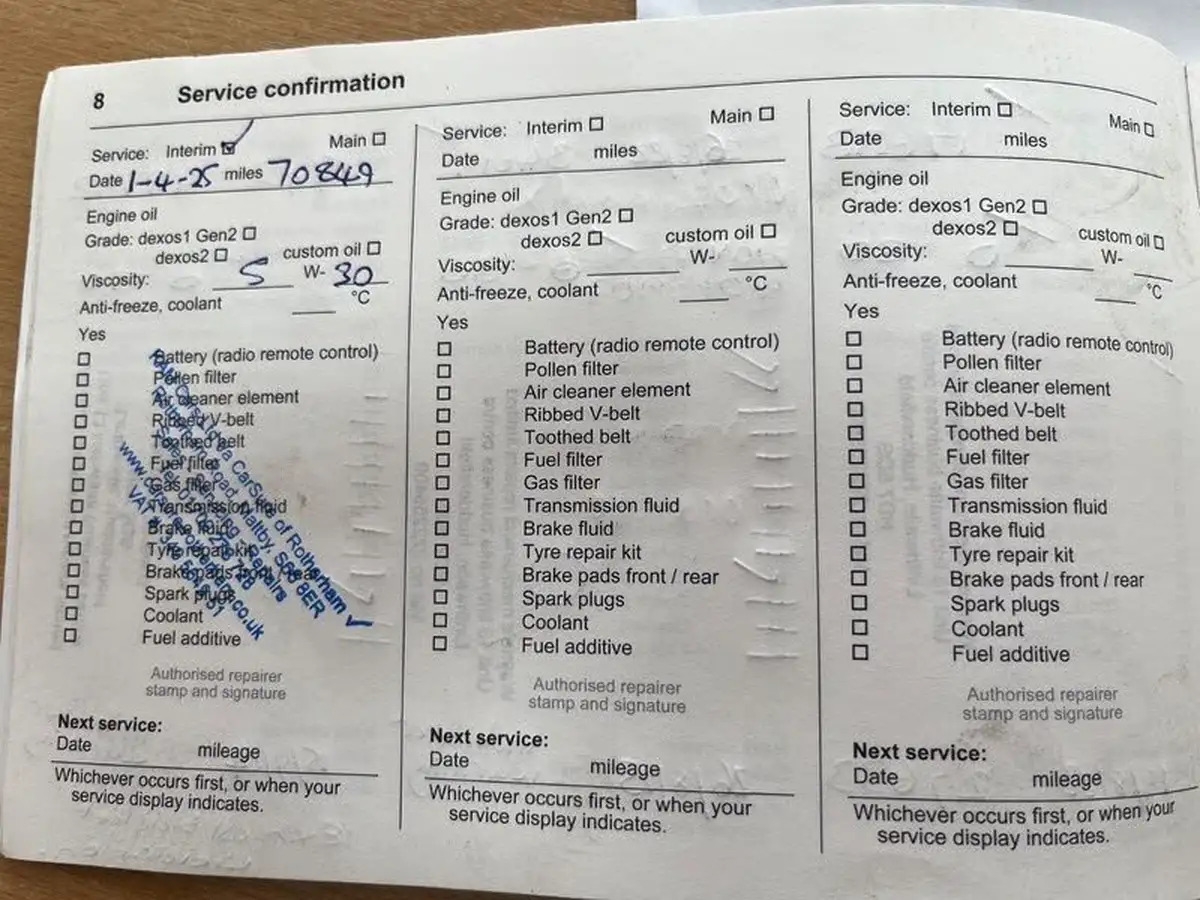 8 Service confirmation
Service: Interim Main
Date 1-4-25 miles 70849
Engine oil
Grade: dexos1 Gen2
dexos2 custom oil
Viscosity: 5 W- 30
Anti-freeze, coolant °C
Yes
Battery (radio remote control)
Pollen filter
Air cleaner element
Ribbed V-belt
Toothed belt
Fuel filter
Gas filter
Transmission fluid
Brake fluid
Tyre repair kit
Brake pads front / rear
Spark plugs
Coolant
Fuel additive
CarSure of Rotherham
Road, Maltby, S66 8ER
Repairs
Authorised repairer
stamp and signature
Next service:
Date mileage
Whichever occurs first, or when your
service display indicates.
Service: Interim Main
Date miles
Engine oil
Grade: dexos1 Gen2
dexos2 custom oil
Viscosity: W-
Anti-freeze, coolant °C
Yes
Battery (radio remote control)
Pollen filter
Air cleaner element
Ribbed V-belt
Toothed belt
Fuel filter
Gas filter
Transmission fluid
Brake fluid
Tyre repair kit
Brake pads front / rear
Spark plugs
Coolant
Fuel additive
Authorised repairer
stamp and signature
Next service:
Date mileage
Whichever occurs first, or when your
service display indicates.
Service: Interim Main
Date miles
Engine oil
Grade: dexos1 Gen2
dexos2 custom oil
Viscosity: W-
Anti-freeze, coolant °C
Yes
Battery (radio remote control)
Pollen filter
Air cleaner element
Ribbed V-belt
Toothed belt
Fuel filter
Gas filter
Transmission fluid
Brake fluid
Tyre repair kit
Brake pads front / rear
Spark plugs
Coolant
Fuel additive
Authorised repairer
stamp and signature
Next service:
Date mileage
Whichever occurs first, or when your
service display indicates.